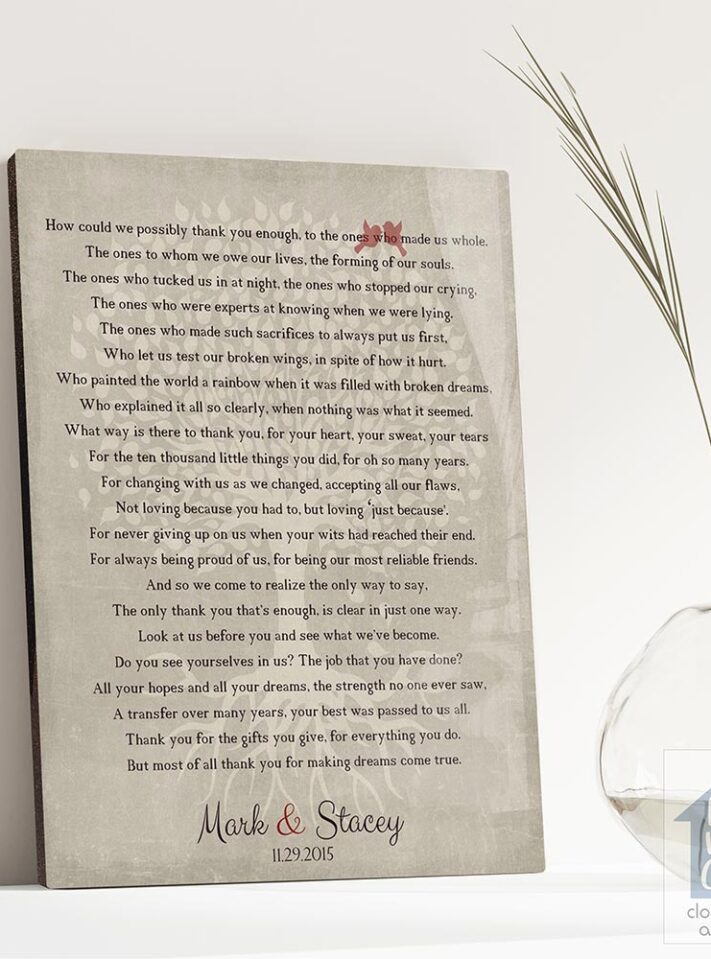 How could we possibly thank you enough, to the ones who made us whole.
The ones to whom we owe our lives, the forming of our souls.
The ones who tucked us in at night, the ones who stopped our crying,
The ones who were experts at knowing when we were lying.
The ones who made such sacrifices to always put us first,
Who let us test our broken wings, in spite of how it hurt.
Who painted the world a rainbow when it was filled with broken dreams,
Who explained it all so clearly, when nothing was what it seemed.
What way is there to thank you, for your heart, your sweat, your tears
For the ten thousand little things you did, for oh so many years.
For changing with us as we changed, accepting all our flaws,
Not loving because you had to, but loving ‘just because’.
For never giving up on us when your wits had reached their end.
For always being proud of us, for being our most reliable friends.
And so we come to realize the only way to say,
The only thank you that's enough, is clear in just one way.
Look at us before you and see what we've become.
Do you see yourselves in us? The job that you have done?
All your hopes and all your dreams, the strength no one ever saw,
A transfer over many years, your best was passed to us all.
Thank you for the gifts you give, for everything you do.
But most of all thank you for making dreams come true.
Mark & Stacey
11.29.2015